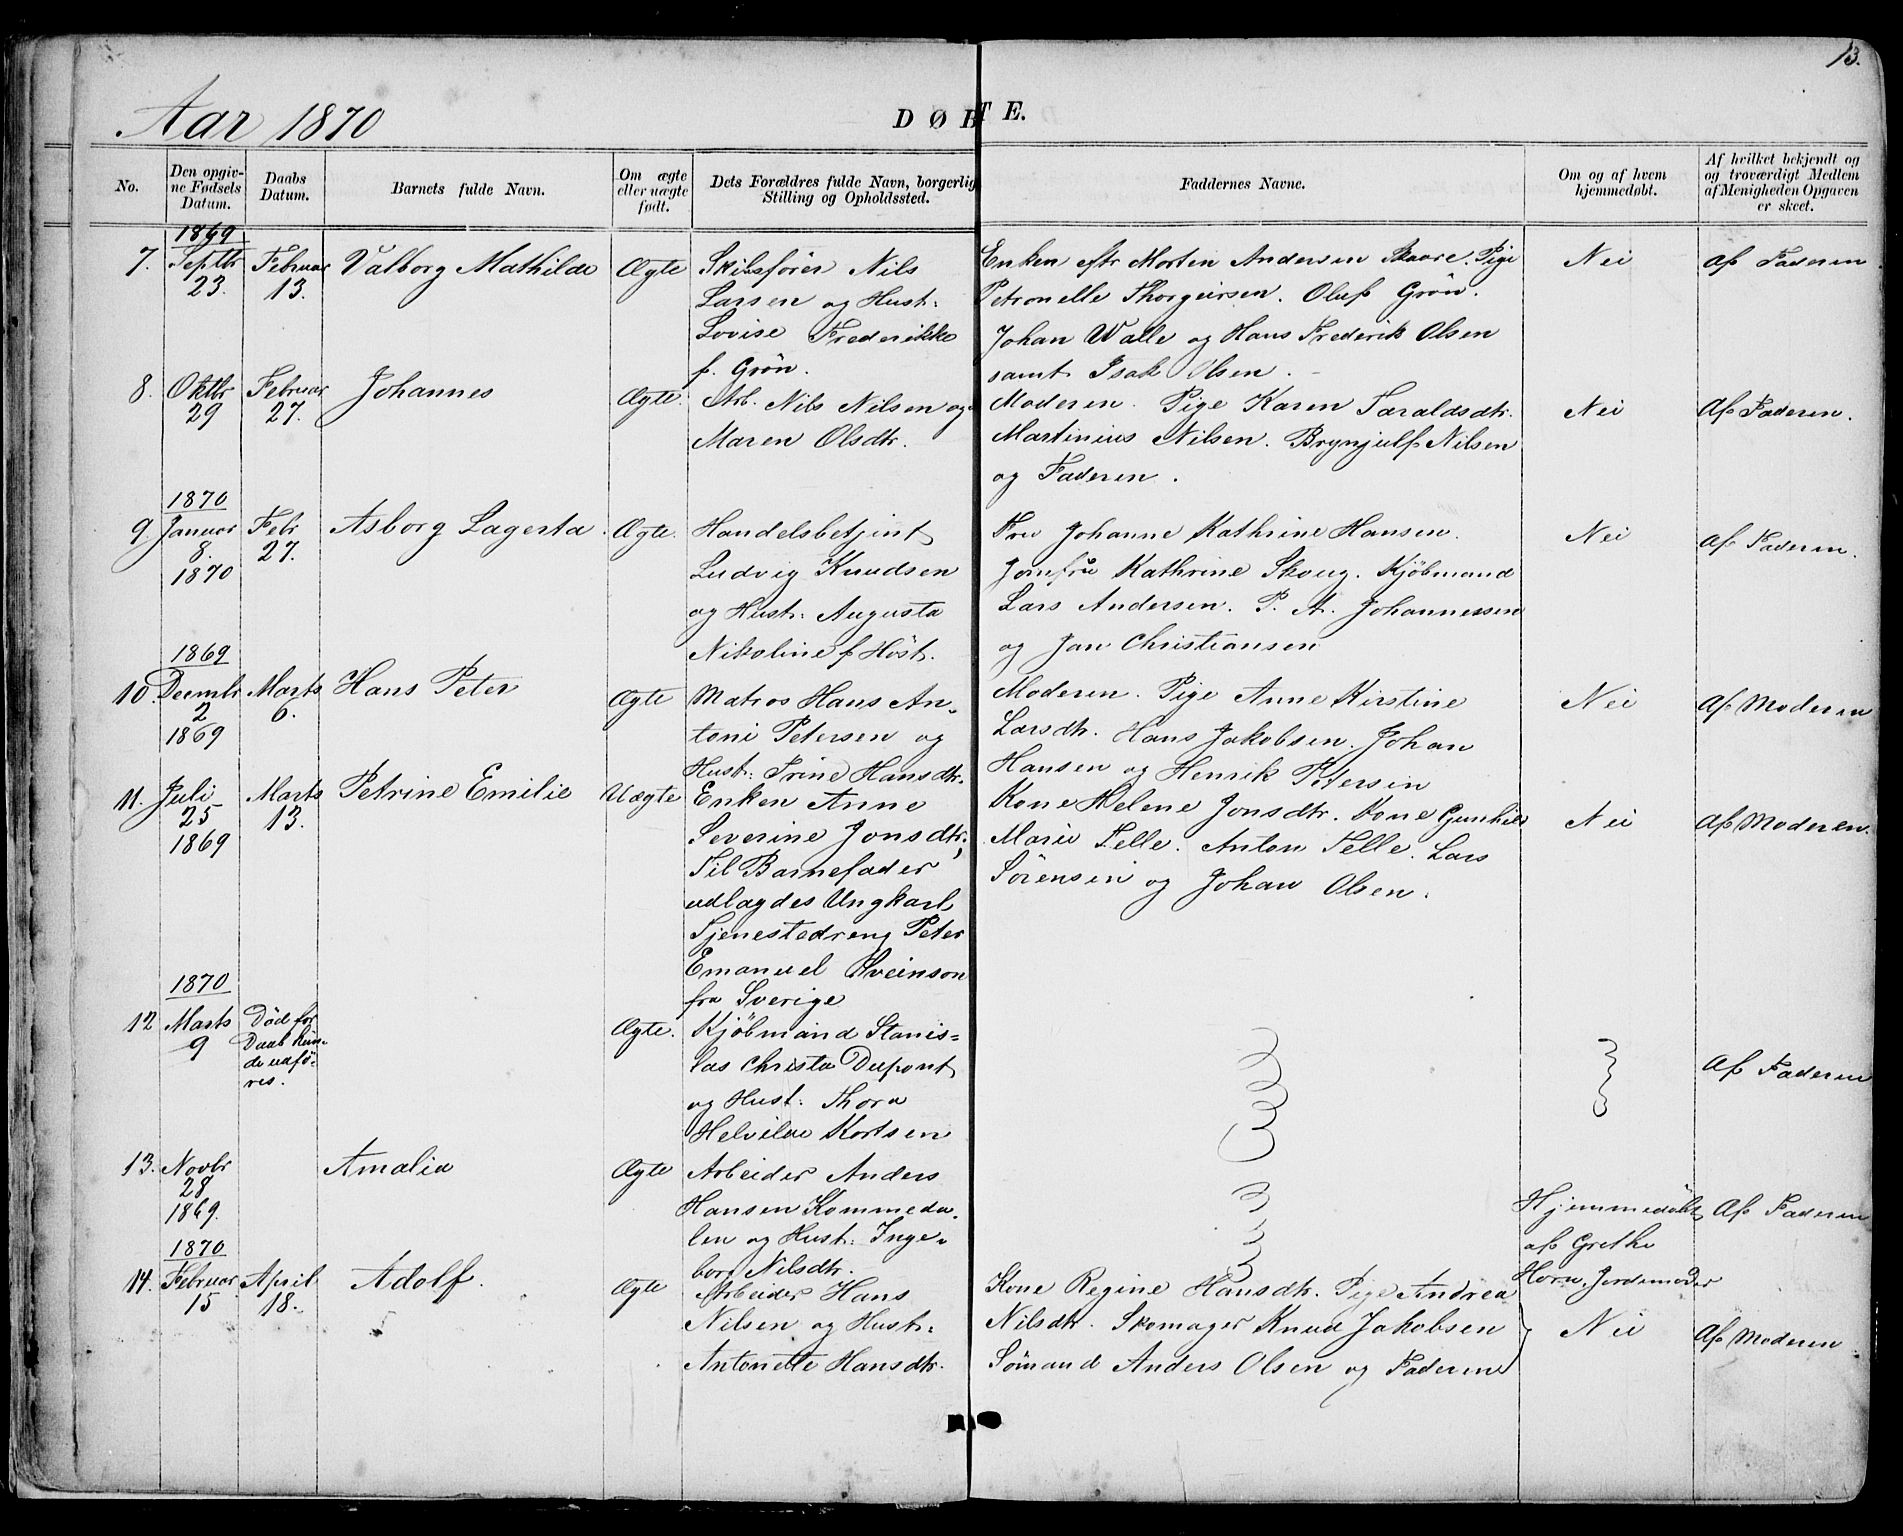 13.
Aar 1870
DØBTE.
No.
Den opgiv-
ne Fødsels
Datum.
Daabs
Datum.
Barnets fulde Navn.
Om ægte
eller uægte
født.
Dets Forældres fulde Navn, borgerlig
Stilling og Opholdssted.
Faddernes Navne.
Om og af hvem
hjemmedøbt.
Af hvilket bekjendt og
og troværdigt Medlem
af Menigheden Opgaven
er skeet.
1869
7.
Septbr
23.
Februar
13.
Valborg Mathilde
Ægte
Skibsfører Nils
Larsen og Hust:
Lovise Frederikke
f. Grøn.
Enken eftr Morten Andersen Pige
Petronelle Thorgeirsen. Oluf Grøn.
Johan Walle og Hans Frederik Olsen
samt Isak Olsen.
Nei
Af Faderen
8.
Oktbr
29
Februar
27.
Johannes
Ægte.
Arb. Nils Nilsen og
Maren Olsdtr.
Moderen. Pige Karen Taraldsdtr.
Martinius Nilsen. Brynjulf Nilsen
og Faderen.
Nei
Af Faderen.
1870
9.
Januar
8.
1870
Febr
27.
Asborg Lagerta.
Ægte.
Handelsbetjent
Ludvig Knudsen
og Hust: Augusta
Nikoline f Høst.
Fru Johanne Kathrine Hansen.
Jomfru Kathrine Skoug. Kjøbmand
Lars Andersen. P. A. Johannessen
og Jan Christiansen
Nei
Af Faderen.
1869
10.
Decembr
2
1869
Marts
6.
Hans Peter
Ægte
Matros Hans An-
toni Petersen og
Hust: Trine Hansdtr.
Moderen. Pige Anne Kirstine
Larsdtr. Hans Jakobsen. Johan
Hansen og Henrik Petersen
Nei
Af Moderen
11.
Juli
25
1869
Marts
13.
Petrine Emilie
Uægte
Enken Anne
Severine Jonsdtr,
Til Barnefader
udlagdes Ungkarl
Tjenestedreng Peter
Emanuel Sveinson
fra Sverige
Kone Helene Jonsdtr. Kone Gunhild
Marie Felle. Anton Felle. Lars
Sørensen og Johan Olsen.
Nei
Af Moderen.
1870
12
Marts
9
Død før
Daab kun-
de udfø-
res.
Ægte.
Kjøbmand Stanis-
las Christa Dupont
og Hust: Thora
Helvilde Kortsen
Af Faderen
13.
Novbr
28
1869.
Amalia
Ægte
Arbeider Anders
Hansen Kommeda-
len og Hust: Inge-
borg Nilsdtr.
Hjemmedøbt
af Grethe
Horn, Jordemoder
Af Faderen
1870
14.
Februar
15
April
18.
Adolf.
Ægte
Arbeider Hans
Nilsen og Hust:
Antonette Hansdtr.
Kone Regine Hansdtr. Pige Andrea
Nilsdtr. Skomager Knud Jakobsen
Sømand Anders Olsen og Faderen
Nei
Af Moderen